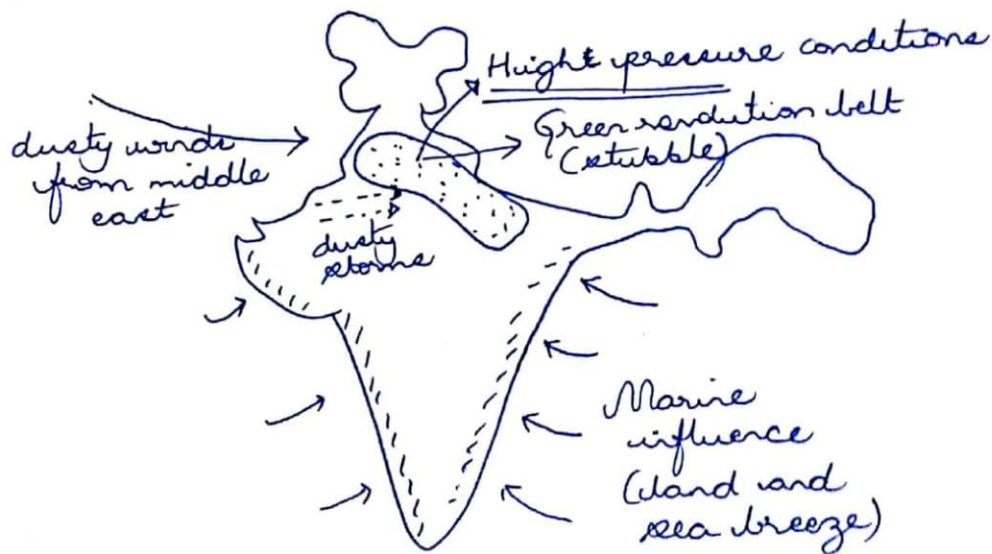 Hight pressure conditions
Green revolution belt
(stubble)
dusty winds
from middle
east
dusty
storms
Marine
influence
(land and
sea breeze)